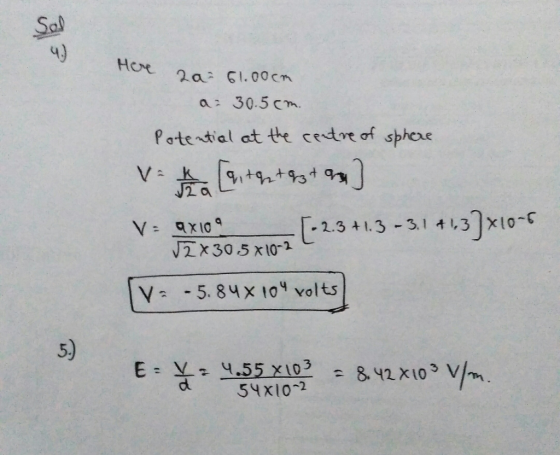 Sol
4.)
Here 2a = 61.00cm
a = 30.5 cm.
Potential at the centre of sphere
V = k/√2 a [q1 + q2 + q3 + q4]
V = 9×10^9 / √2 × 30.5 × 10^-2 [-2.3 + 1.3 - 3.1 + 1.3] × 10^-6
V = - 5.84 × 10^4 volts
5.)
E = V/d = 4.55 × 10^3 / 54×10^-2 = 8.42 × 10^3 V/m.